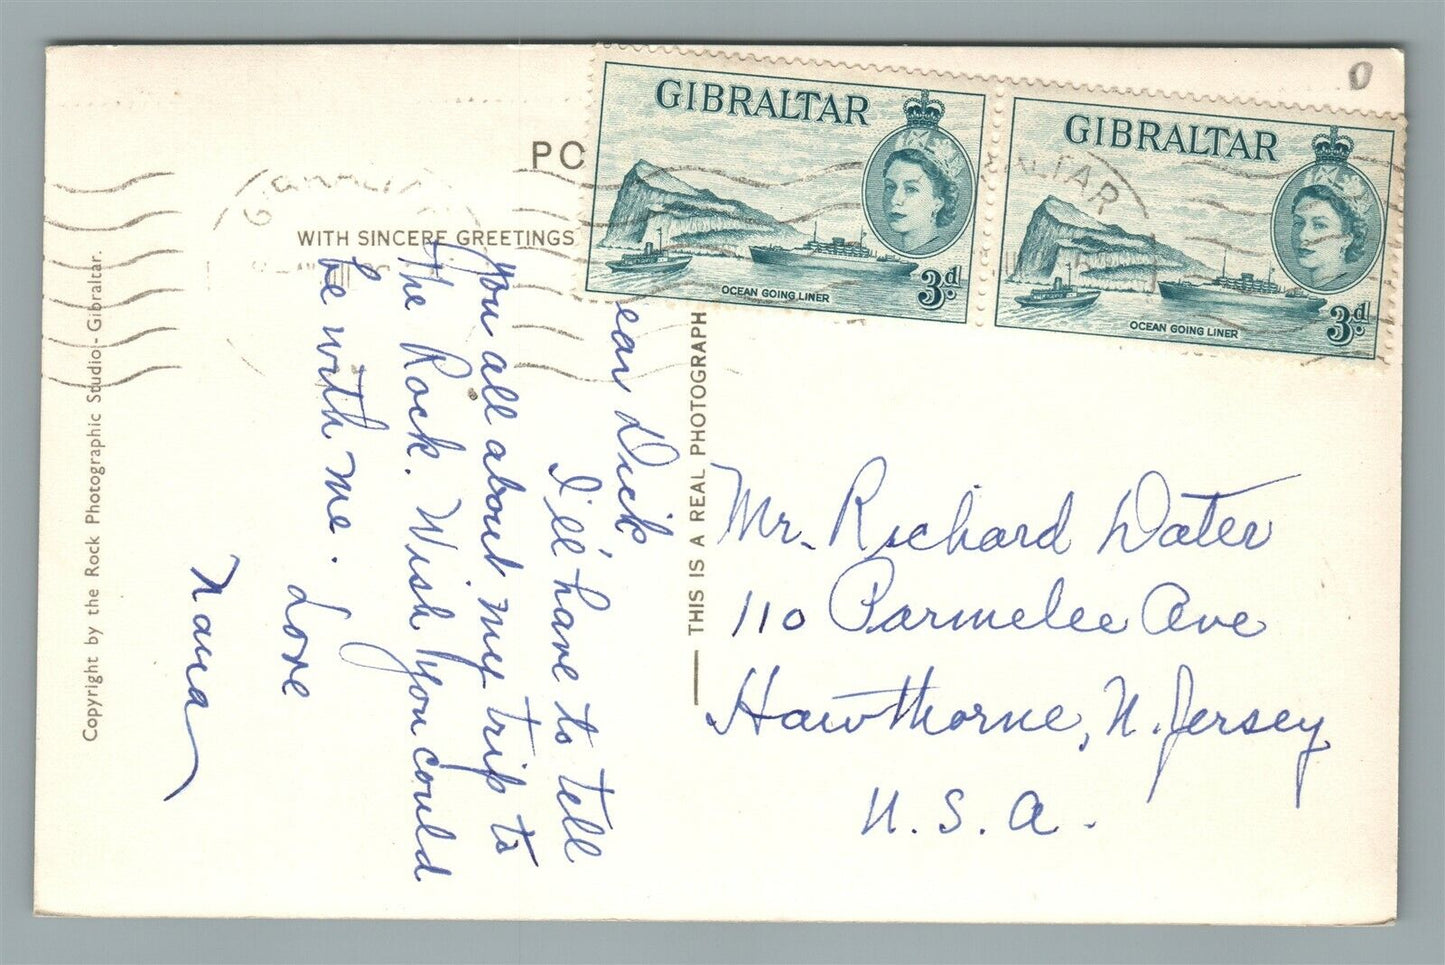 GIBRALTAR
3d
OCEAN GOING LINER
GIBRALTAR
3d
OCEAN GOING LINER
PO
WITH SINCERE GREETINGS
ear Dick,
I'll have to tell
you all about my trip to
the Rock. Wish you could
be with me.
Love
Nana
THIS IS A REAL PHOTOGRAPH
Copyright by the Rock Photographic Studio - Gibraltar.
Mr. Richard Dater
110 Parmelee Ave
Hawthorne, N. Jersey
U. S. A.